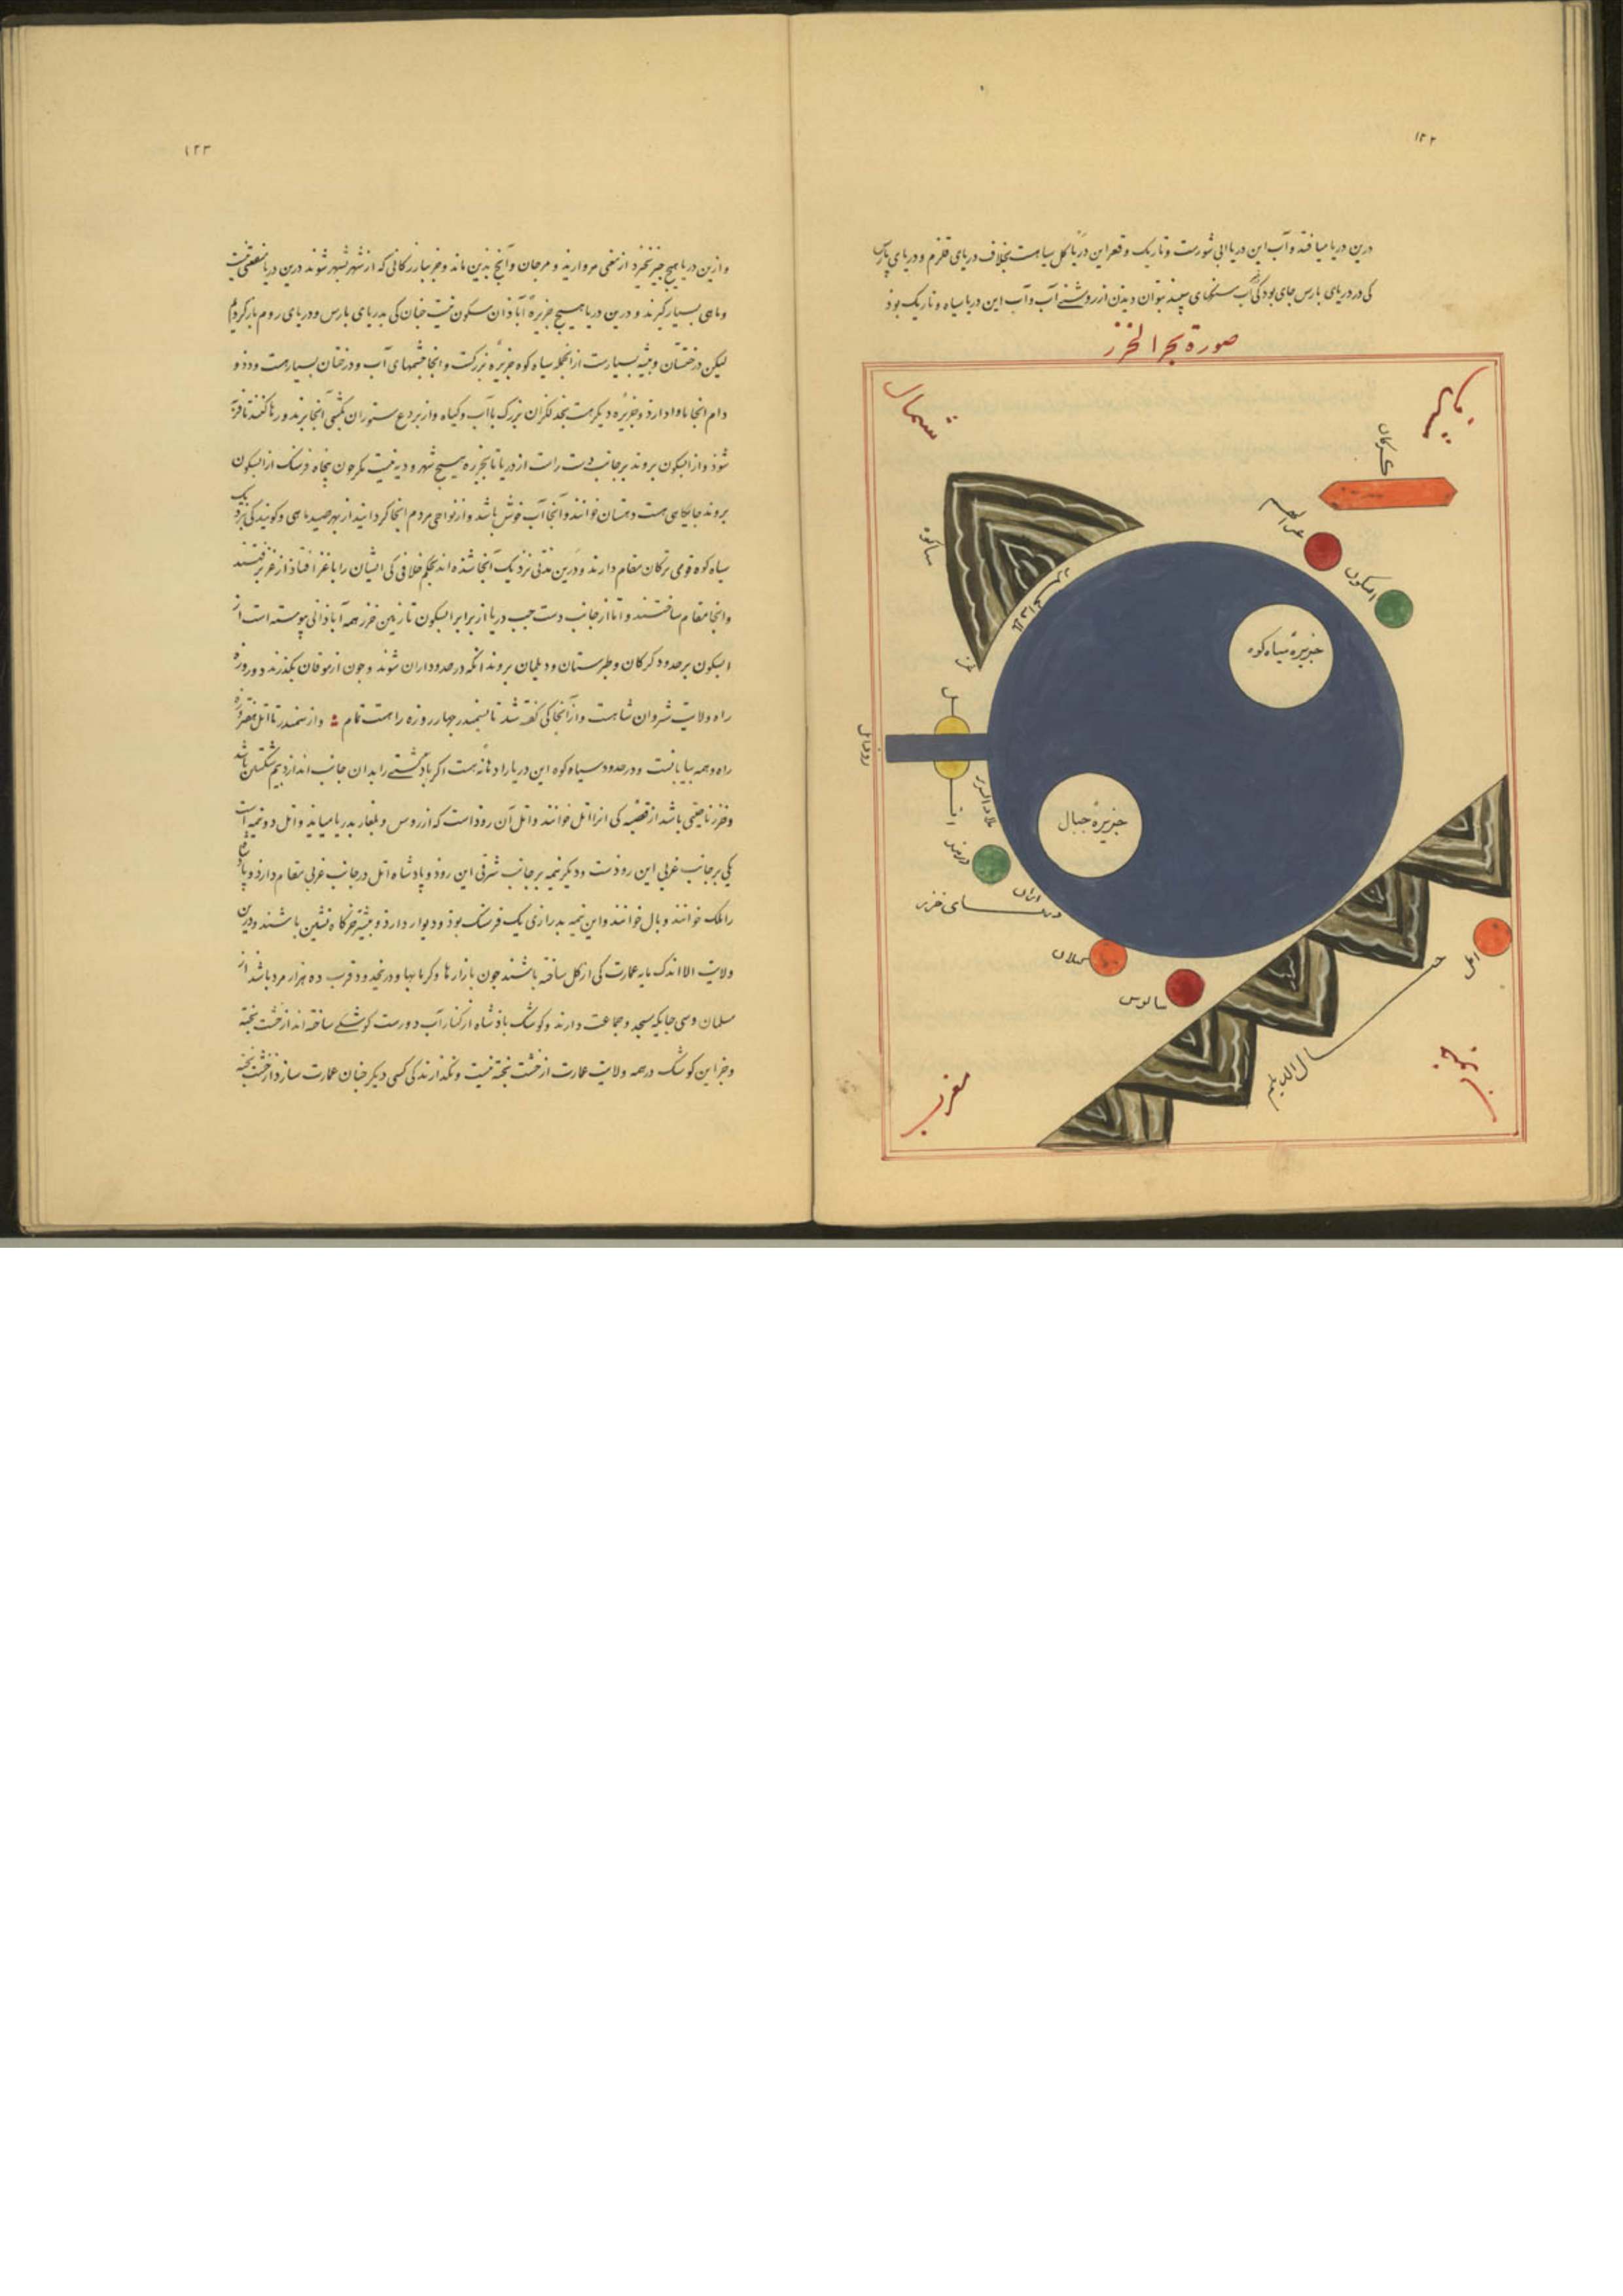 ۱۲۲
درین دریا میافتد و آب این دریا آبی شورست و تاریک و قعر این دریا کل سیاهست بخلاف دریای قلزم و دریای پارس
کی در دریای پارس جای بود کی آب سنکهای سپید بتوان دیدن از روشنی آب و آب این دریا سیاه و تاریک بود
صورة بحر الخزر
شمال
کرکان
ابسکون
سیاکوه
جزیرهٔ سیاه کوه
جزیرهٔ جبال
دربند
دریای خزر
کیلان
سالوس
امل
جبال الدیلم
مغرب
جنوب
۱۲۳
و ازین دریا هیچ چیز نخیزد از معنی مروارید و مرجان و آنچ بدین ماند و جز بازرکانی که از شهر بشهر شوند درین دریا منفعتی نیست
و ماهی بسیار کیرند و درین دریا هیچ جزیرهٔ آباذان مسکون نیست چنان کی بدریای پارس و دریای روم یاد کردیم
لیکن درختستان و بیشه بسیارست از آنجمله سیاه کوه جزیرهٔ بزرکست و آنجا چشمهای آب و درختان بسیارست و دد و
دام آنجا ماوا دارد و جزیرهٔ دیکر هست بحد لکران بزرک با آب و کیاه و از بردع ستوران بکشتی آنجا برند و رها کنند تا فربه
شوذ و از ابسکون بروند بر جانب دست راست از دریا تا بخزر هیچ شهر و دیه نیست مکر چون پنجاه فرسنک از ابسکون
بروند جایکاهی هست دهستان خوانند و آنجا آب خوش باشد و از نواحی مردم آنجا کرد آیند از بهر صید ماهی و کویند کی نزدیک
سیاه کوه قومی ترکان مقام دارند و درین مدتی نزدیک آنجا شده اند بحکم خلافی کی ایشان را با غز افتاد از غز برفتند
و آنجا مقام ساختند و اما از جانب دست چپ دریا از برابر ابسکون تا زمین خزر همه آباذانی پیوسته است از
ابسکون بر حدود کرکان و طبرستان و دیلمان بروند آنکه در حدود اران شوند و چون از موقان بکذرند دو روزه
راه ولایت شروان شاهست و از آنجا کی کفته شد تا بسمندر چهار روزه راهست تمام و از سمندر تا اتل هفت روزه
راه و همه بیابانست و در حدود سیاه کوه این دریا را دهانه هست اکر باد کشتی را بدان جانب اندازد بیم شکستن باشد
و خزر ناحیتی باشد از قصبه کی آنرا اتل خوانند و اتل آن رود است که از روس و بلغار بدریا میآید و اتل دو نیمه است
یکی بر جانب غربی این روذست و دیکر نیمه بر جانب شرقی این روذ و پادشاه اتل در جانب غربی مقام دارد و پادشاه
را ملک خوانند و بال خوانند و این نیمه بدرازی یک فرسنک بوذ و دیوار دارد و بیشتر خرکاه نشین باشند و درین
ولایت الا اندک مایه عمارت کی از کل ساخته باشند چون بازارها و کرمابها و درینحدود قرب ده هزار مرد باشد از
مسلمان و سی جایکه مسجد و جماعت دارند و کوشک پادشاه از کنار آب دورست کوشکی ساخته اند از خشت پخته
و جز این کوشک در همه ولایت عمارت از خشت پخته نیست و نکذارند کی کسی دیکر چنان عمارت سازد از خشت پخته